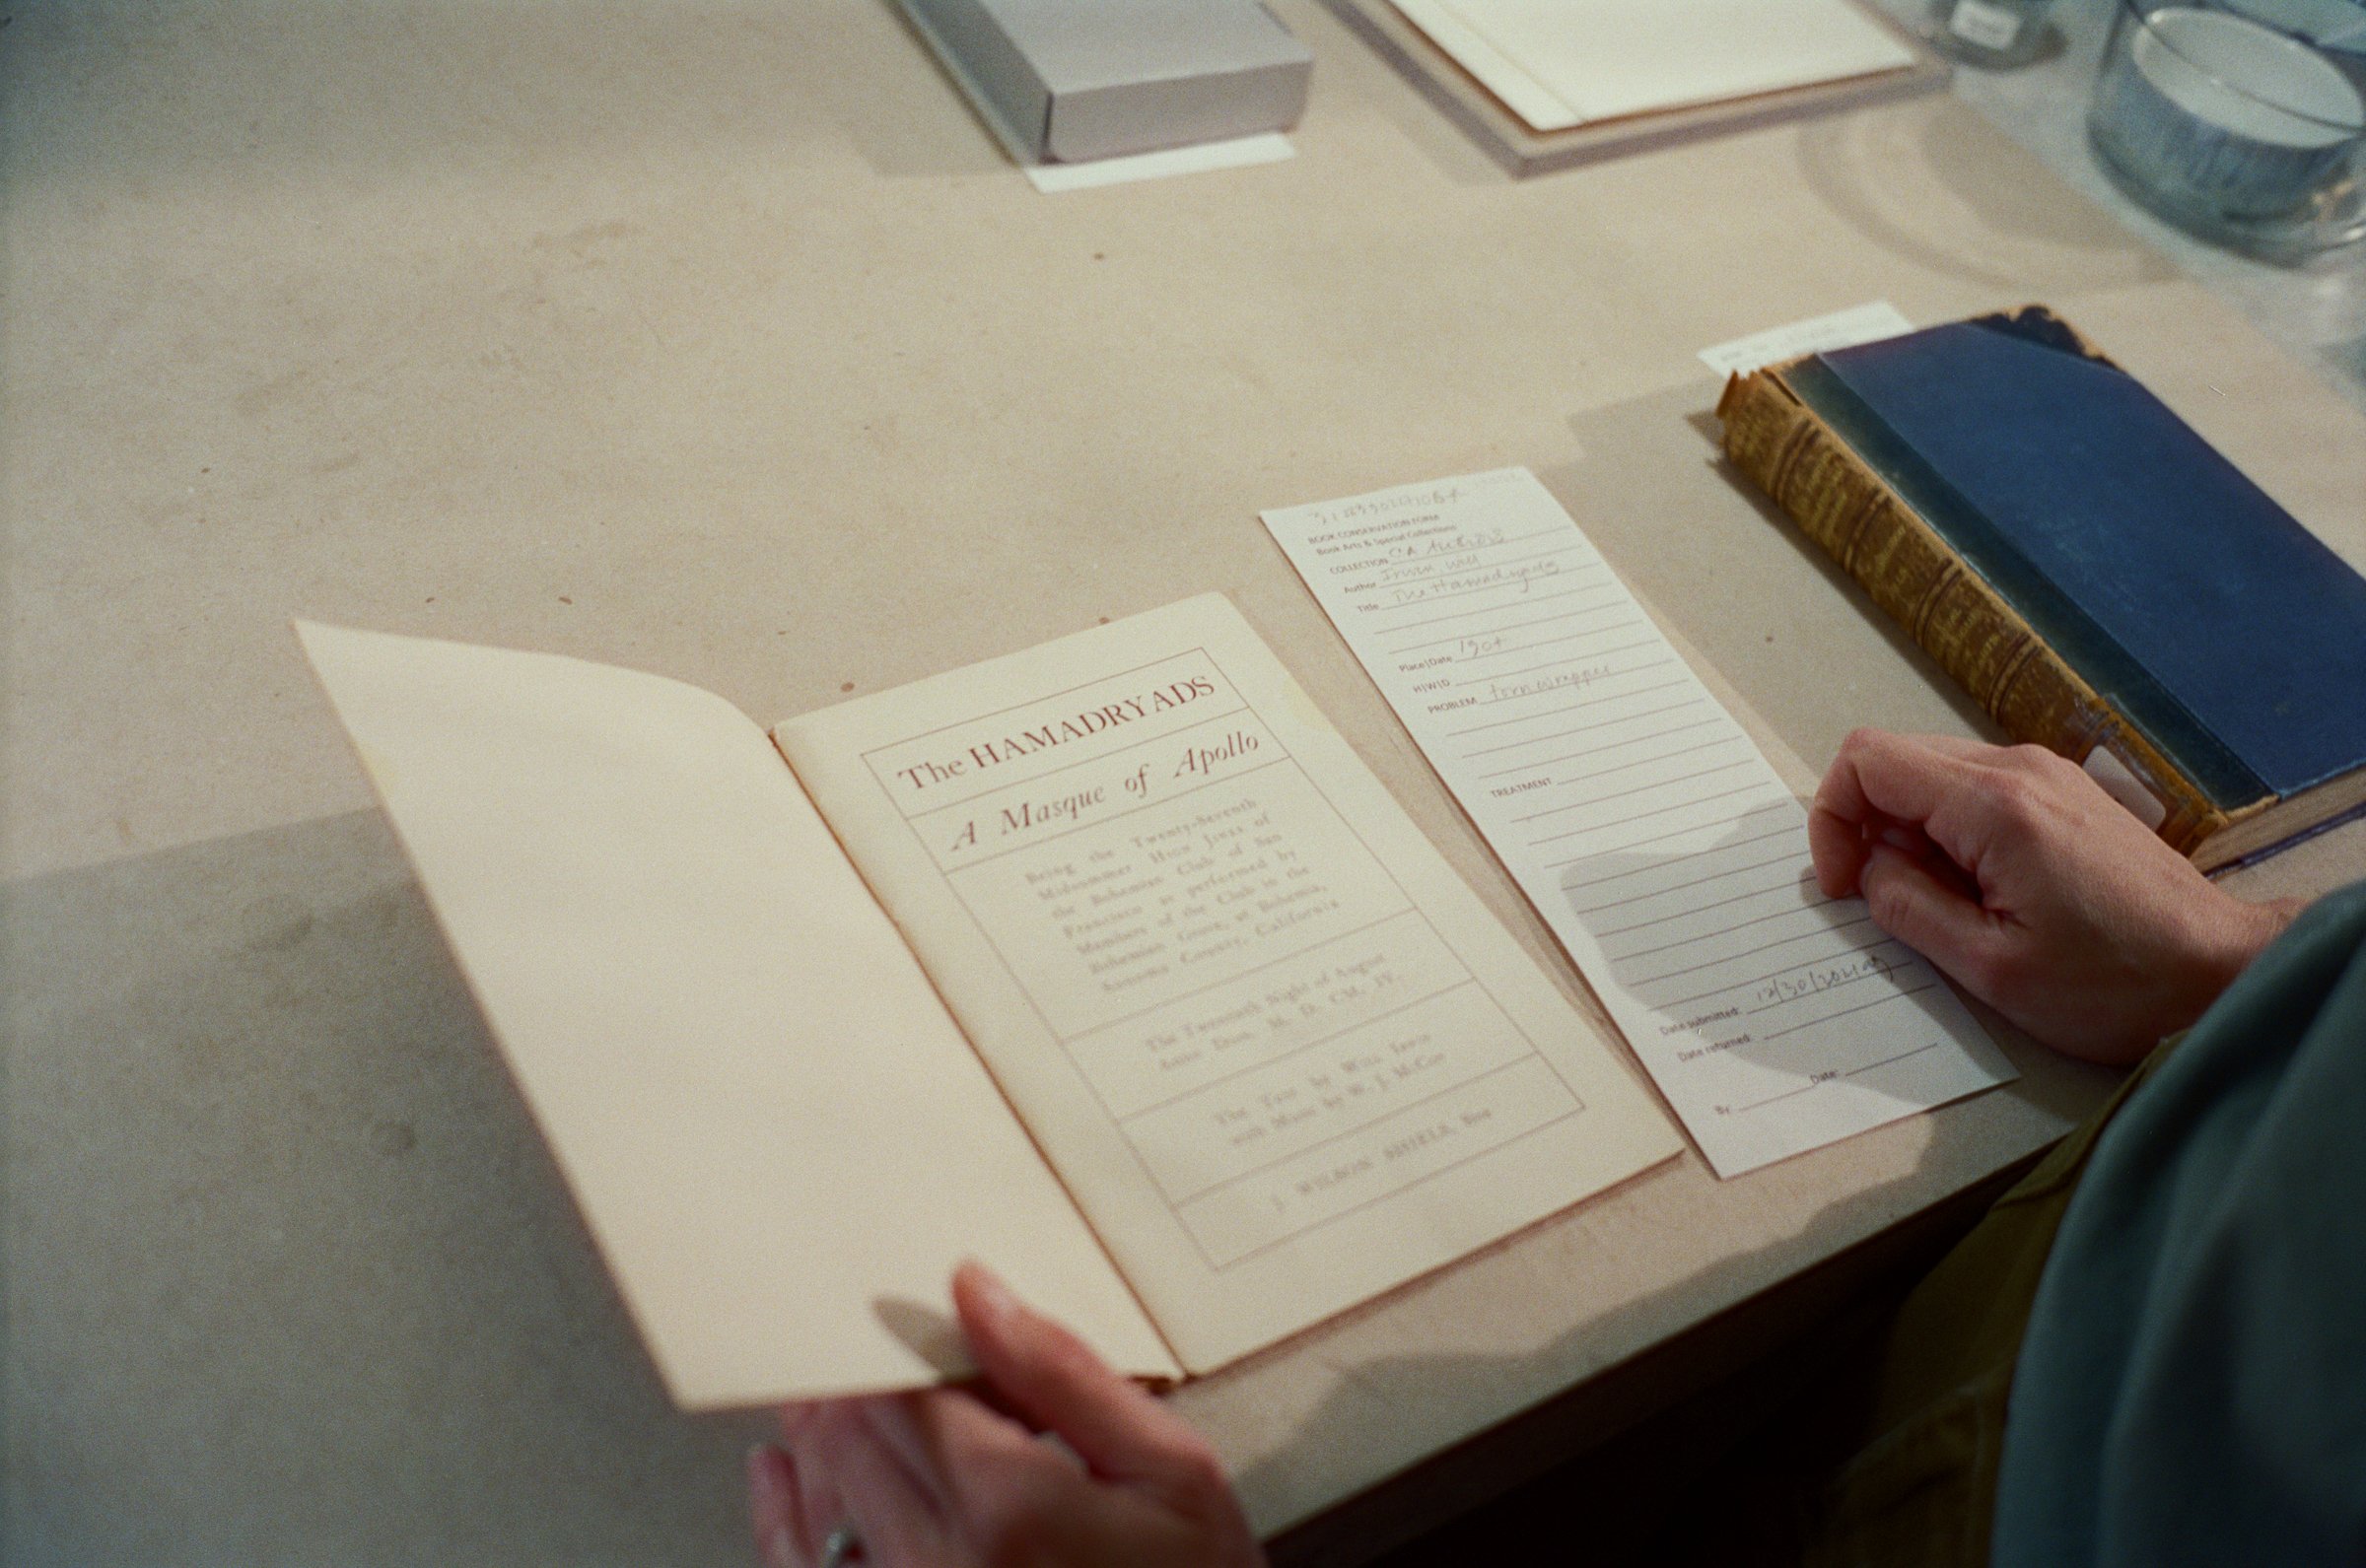 The HAMADRYADS
A Masque of Apollo
Being the Twenty-Seventh
Midsummer HIGH JINKS of
the Bohemian Club of San
Francisco as performed by
Members of the Club in the
Bohemian Grove, at Bohemia,
Sonoma County, California
The Twentieth Night of August
Anno Dom. M. D. CM. IV.
The Text by Will Irwin
with Music by W. J. McCoy
J. WILSON SHIELS,
BOOK CONSERVATION FORM
Book Arts & Special Collections
COLLECTION CA Authors
Author Irwin Will
Title The Hamadryads
Place/Date 1904
PROBLEM torn wrapper
TREATMENT
Date submitted: 12/30/2021
Date returned:
Date:
By